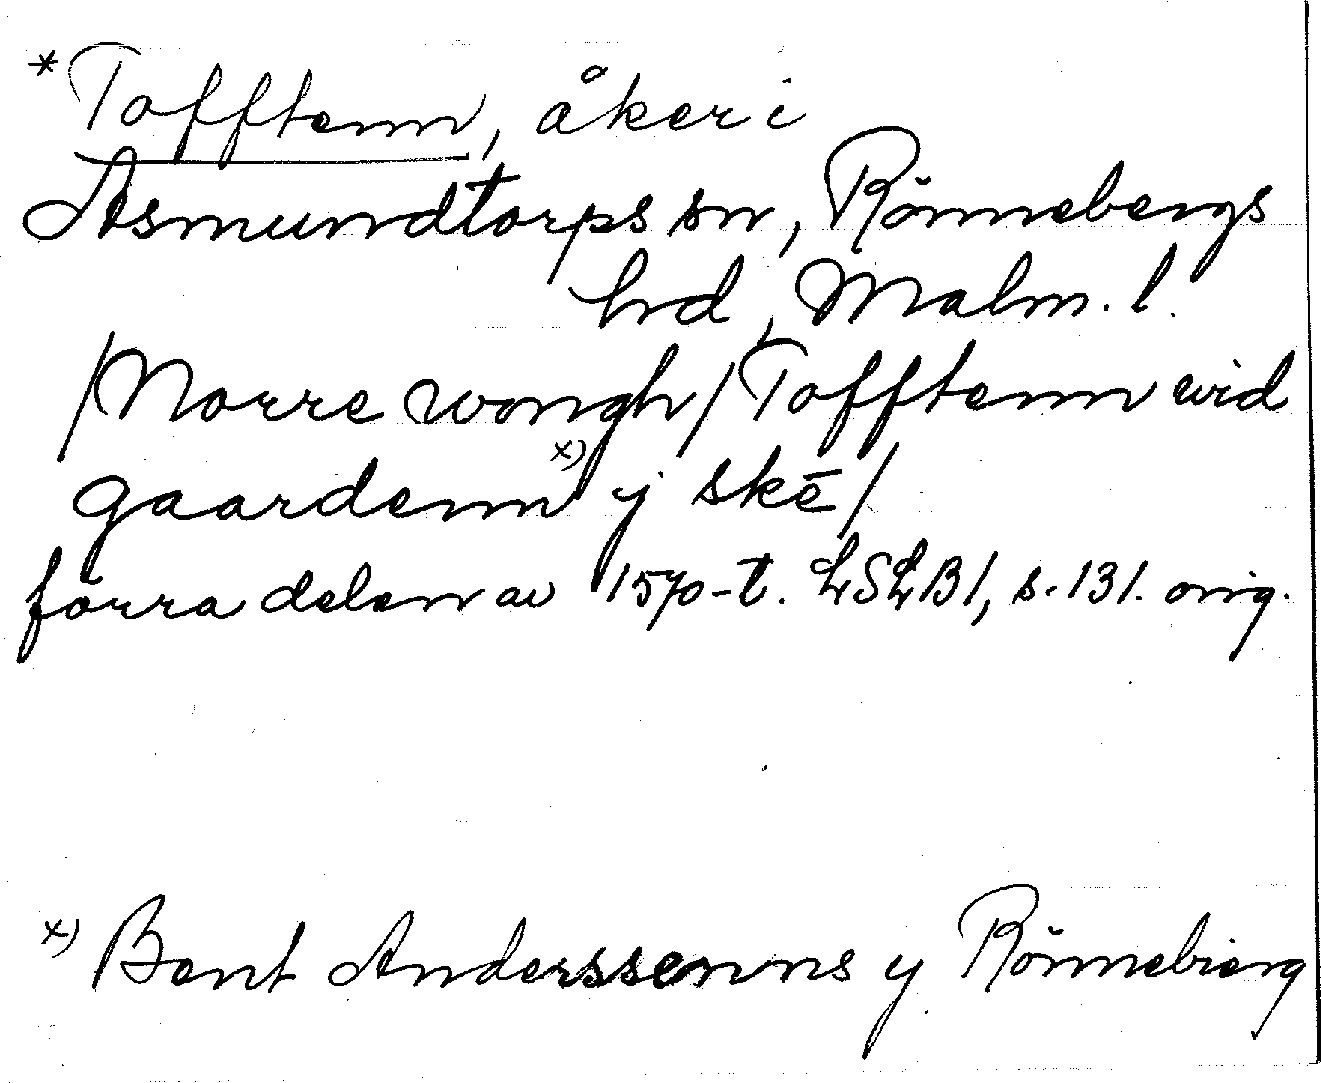 *Tofftenn, åker i
Asmundtorps sn, Rönnebergs
hrd, Malm. l.
/Norre wongh/ Tofftenn wid
gaardenn x) y skē/
förra delen av 1570-t. LSLB1, s. 131. orig.
x) Bent Anderssenns y Rönnebierg